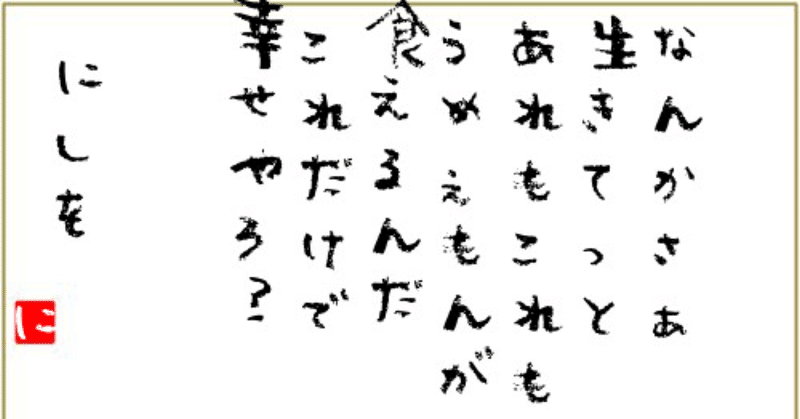 なんかさぁ
生きてっと
あれもこれも
うめえもんが
食えるんだ
これだけで
幸せやろ?
にしを
に